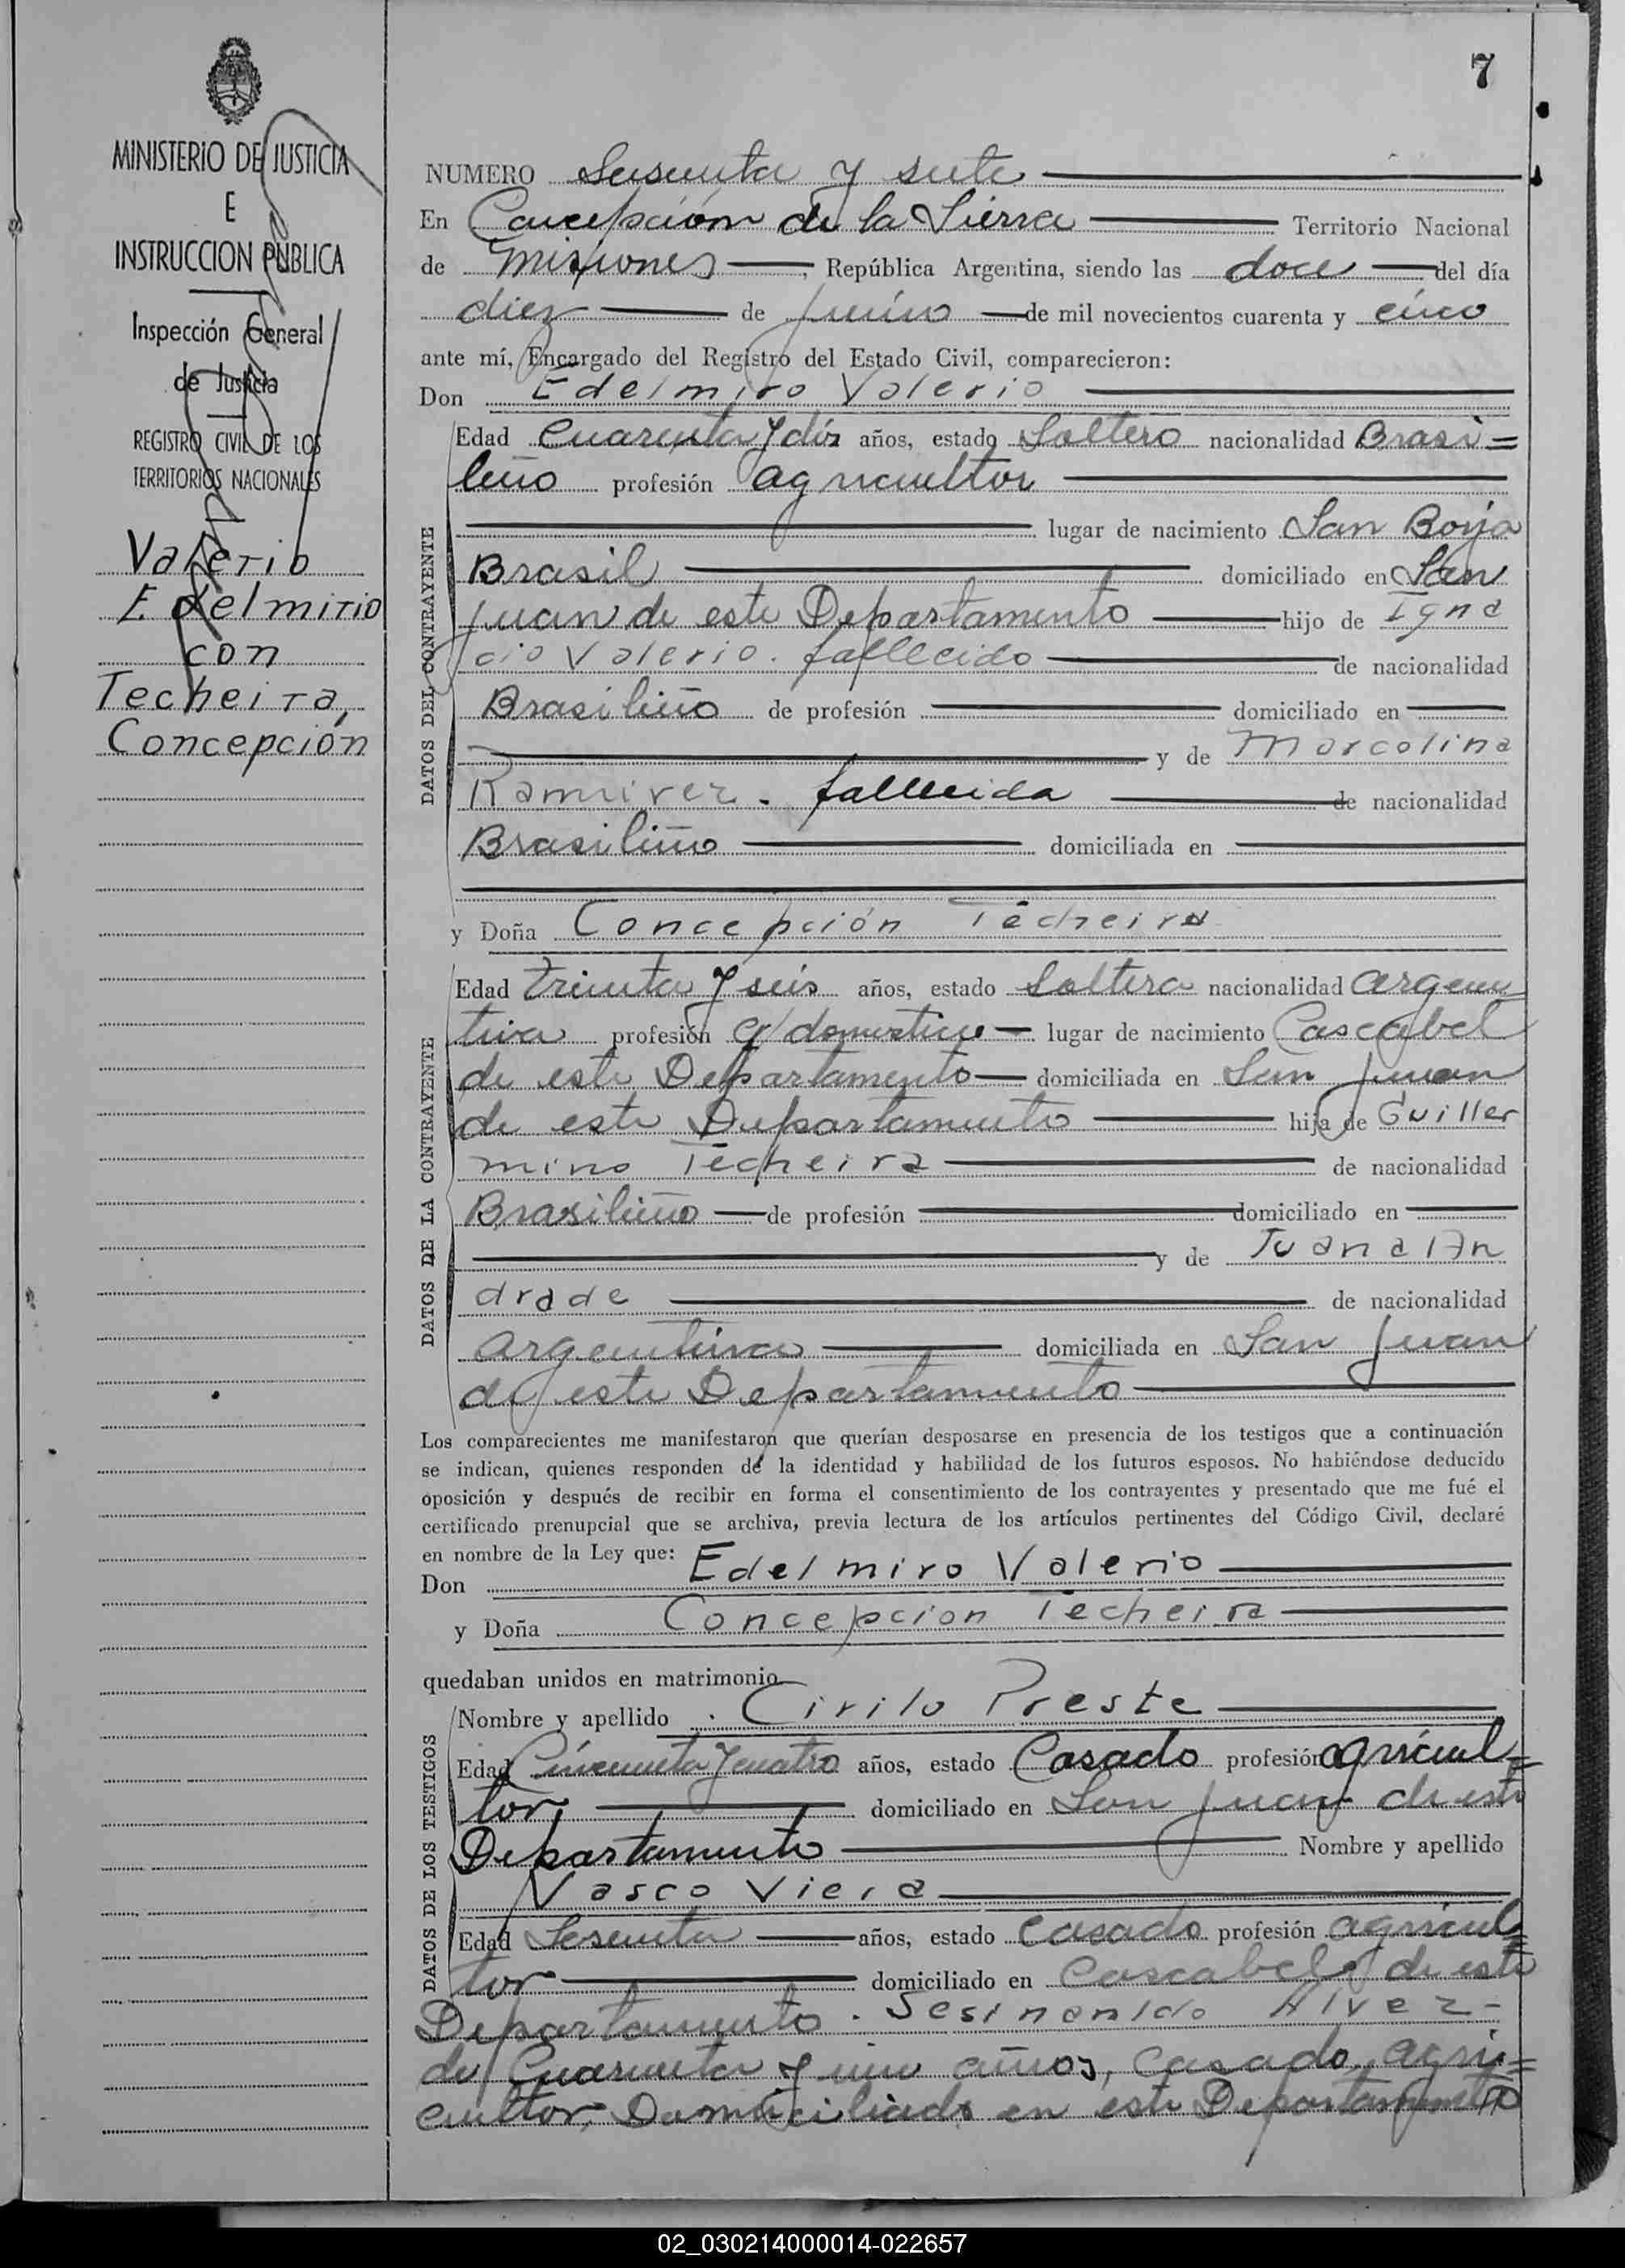 7
MINISTERIO DE JUSTICIA
E
INSTRUCCION PUBLICA
Inspección General
de Justicia
REGISTRO CIVIL DE LOS
TERRITORIOS NACIONALES
Valerio
Edelmirio
con
Techeira,
Concepción
NUMERO Sesenta y siete
En Concepción de la Sierra Territorio Nacional
de Misiones, República Argentina, siendo las doce del día
diez de Junio de mil novecientos cuarenta y cinco
ante mí, Encargado del Registro del Estado Civil, comparecieron:
Don Edelmiro Valerio
DATOS DEL CONTRAYENTE
Edad Cuarenta y dós años, estado Soltero nacionalidad Brasi=
leño profesión agricultor
lugar de nacimiento San Borja
Brasil domiciliado en San
Juan de este Departamento hijo de Igna
cio Valerio. fallecido de nacionalidad
Brasileño de profesión domiciliado en
y de Marcolina
Ramirez. fallecida de nacionalidad
Brasileño domiciliada en
y Doña Concepción Techeira
DATOS DE LA CONTRAYENTE
Edad treinta y seis años, estado Soltera nacionalidad argen
tina profesión q/domestico lugar de nacimiento Cascabel
de este Departamento domiciliada en San Juan
de este Departamento hija de Guiller
mino Techeira de nacionalidad
Brasileño de profesión domiciliado en
y de Juana An
drade de nacionalidad
argentina domiciliada en San Juan
de este Departamento
Los comparecientes me manifestaron que querían desposarse en presencia de los testigos que a continuación
se indican, quienes responden de la identidad y habilidad de los futuros esposos. No habiéndose deducido
oposición y después de recibir en forma el consentimiento de los contrayentes y presentado que me fué el
certificado prenupcial que se archiva, previa lectura de los artículos pertinentes del Código Civil, declaré
en nombre de la Ley que:
Don Edelmiro Valerio
y Doña Concepcion Techeira
quedaban unidos en matrimonio
DATOS DE LOS TESTIGOS
Nombre y apellido Cirilo Preste
Edad Cincuenta y cuatro años, estado Casado profesión agricul=
tor domiciliado en San Juan de este
Departamento Nombre y apellido
Vasco Viera
Edad Sesenta años, estado casado profesión agricul=
tor domiciliado en Cascabel de este
Departamento. Sesinando Alvez-
de Cuarenta y un años, casado, agri=
cultor, Domiciliado en este Departamento
02_030214000014-022657